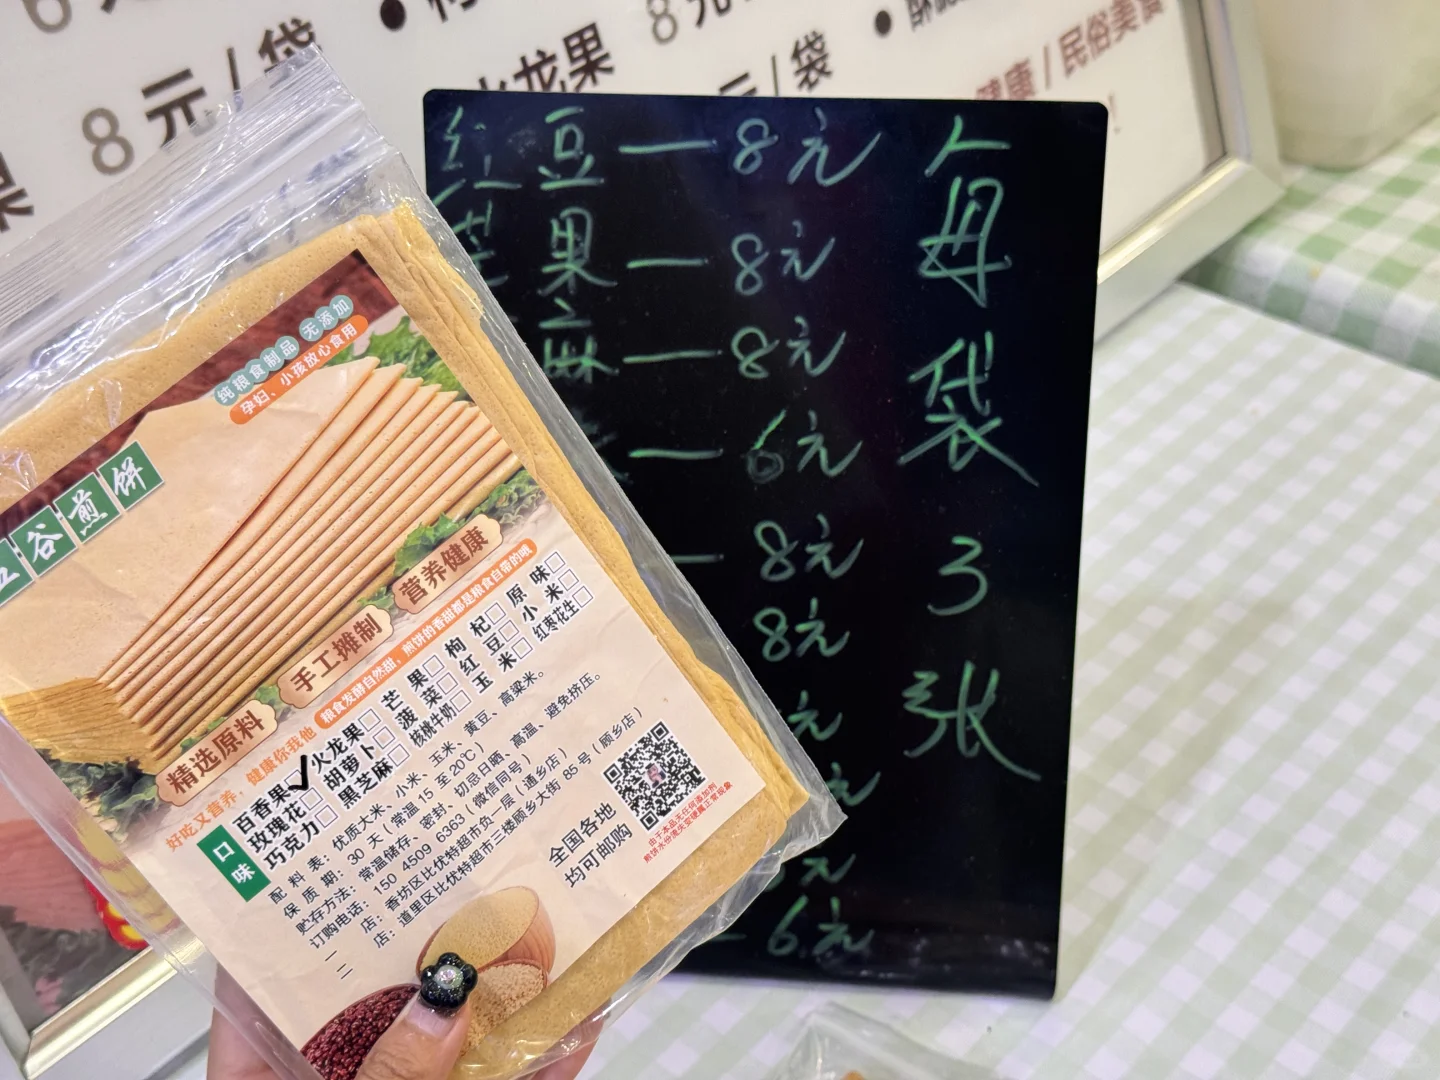 8元/袋
火龙果
8元
元/袋
健康/民俗美食
果
红豆—8元
芒果—8元
芝麻—8元
—6元
—8元
8元
元
元
元
6元
每袋3张
纯粮食制品 无添加
孕妇、小孩放心食用
五谷煎饼
精选原料 手工摊制 营养健康
好吃又营养,健康你我他 粮食发酵自然甜,煎饼的香甜都是粮食自带的哦
口味
百香果✓火龙果□芒果□枸杞□原味□
玫瑰花□胡萝卜□菠菜□红豆□小米□
巧克力□黑芝麻□核桃牛奶□玉米□红枣花生□
配料表:优质大米、小米、玉米、黄豆、高粱米。
保质期:30天(常温15至20℃)
贮存方法:常温储存、密封、切忌日晒、高温、避免挤压。
订购电话:150 4509 6363(微信同号)
一店:香坊区比优特超市负一层(通乡店)
二店:道里区比优特超市三楼顾乡大街85号(顾乡店)
全国各地
均可邮购
由于本品无任何添加剂
煎饼水份流失变硬属正常现象